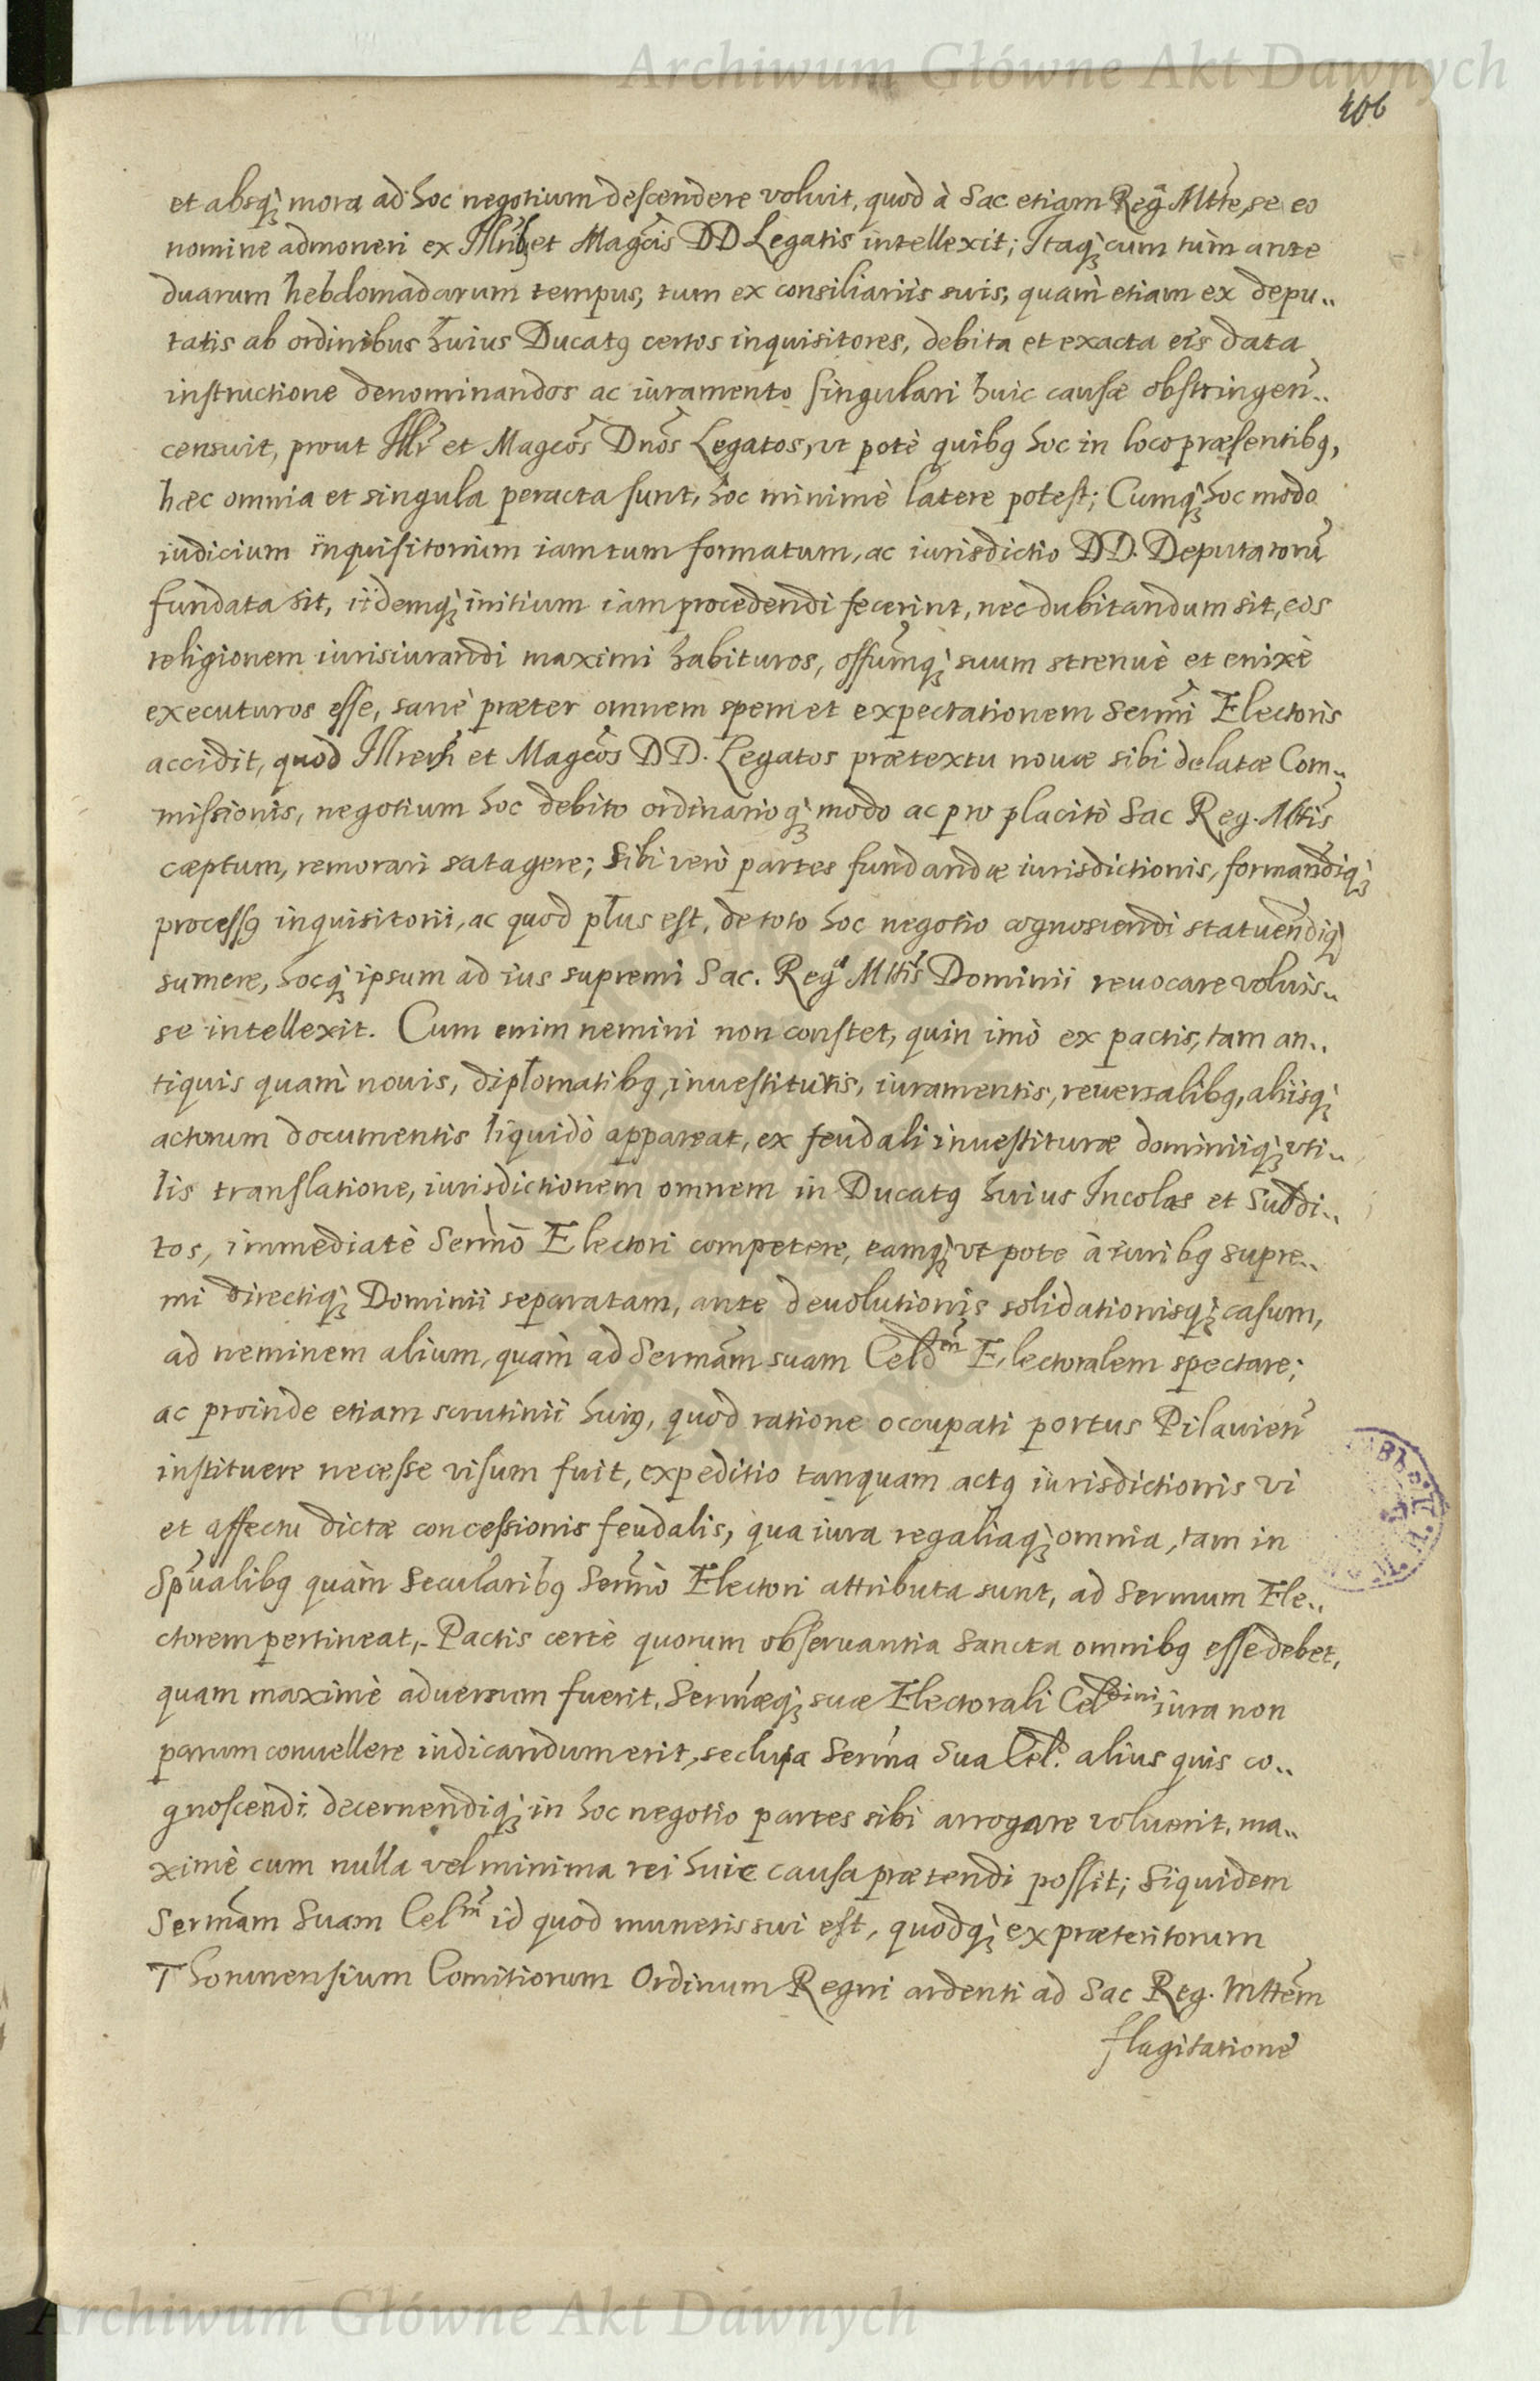 Archiwum Główne Akt Dawnych
406
et absq; mora ad hoc negotium descendere voluit, quod à Sac etiam Reg Mtte, se eo
nomine admoneri ex Illrib; et Magcis DD Legatis intellexit; Itaq; cum tùm ante
duarum hebdomadarum tempus, tum ex consiliariis suis, quam etiam ex depu..
tatis ab ordinibus huius Ducatq certos inquisitores, debita et exacta eis data
instructione denominandos ac iuramento singulari huic causæ obstringen..
censuit, prout Illr et Magcos Dnos Legatos, ut potè quibq hoc in loco præsentibq,
hæc omnia et singula peracta sunt, hoc minimè latere potest; Cumq; hoc modo
iudicium inquisitorium iam tum formatum, ac iurisdictio DD. Deputatorū
fundata sit, iidemq; initium iam procedendi fecerint, nec dubitandum sit, eos
religionem iurisiurandi maximi habituros, offūmq; suum strenuè et enixè
executuros esse, sanè præter omnem spem et expectationem Sermi Electoris
accidit, quod Illres et Magcos DD. Legatos prætextu novæ sibi delatæ Com..
missionis, negotium hoc debito ordinarioq; modo ac pro placitò Sac Reg. Mttis
cæptum, remorari satagere; Sibi verò partes fundandæ iurisdictionis, formandiq;
processq inquisitorii, ac quod plus est, de toto hoc negotio cognoscendi statuendiq;
sumere, hocq; ipsum ad ius supremi Sac. Reg Mttis Dominii revocare voluis..
se intellexit. Cum enim nemini non constet, quin imò ex pactis, tam an..
tiquis quam novis, diplomatibq, investituris, iuramentis, reversalibq, aliisq;
actorum documentis liquidò appareat, ex feudali investituræ dominiiq; uti..
lis translatione, iurisdictionem omnem in Ducatq huius Incolas et Subdi..
tos, immediatè Sermo Electori competere, eamq; ut pote à iuribq supre..
mi directiq; Dominii separatam, ante devolutionis solidationisq; casum,
ad neminem alium, quam ad Sermam suam Celdm Electoralem spectare;
ac proinde etiam scrutinii huiq, quod ratione occupati portus Pilavien
instituere necesse visum fuit, expeditio tanquam actq iurisdictionis vi
et affectu dictæ concessionis feudalis, qua iura regaliaq; omnia, tam in
Spūalibq quàm Secularibq Sermo Electori attributa sunt, ad Sermum Ele..
ctorem pertineat, Pactis certè quorum observantia sancta omnibq esse debet,
quam maximè adversum fuerit, Sermæq; suæ Electorali Celdini iura non
parum convellere iudicandum erit, seclusa Serma Sua Cel. alius quis co..
gnoscendi decernendiq; in hoc negotio partes sibi arrogare voluerit, ma..
ximè cum nulla vel minima rei huic causa prætendi possit; Siquidem
Sermam Suam Celm id quod muneris sui est, quodq; ex præteritorum
Thorunensium Comitiorum Ordinum Regni ardenti ad Sac Reg. Mttem
flagitatione
Archiwum Główne Akt Dawnych